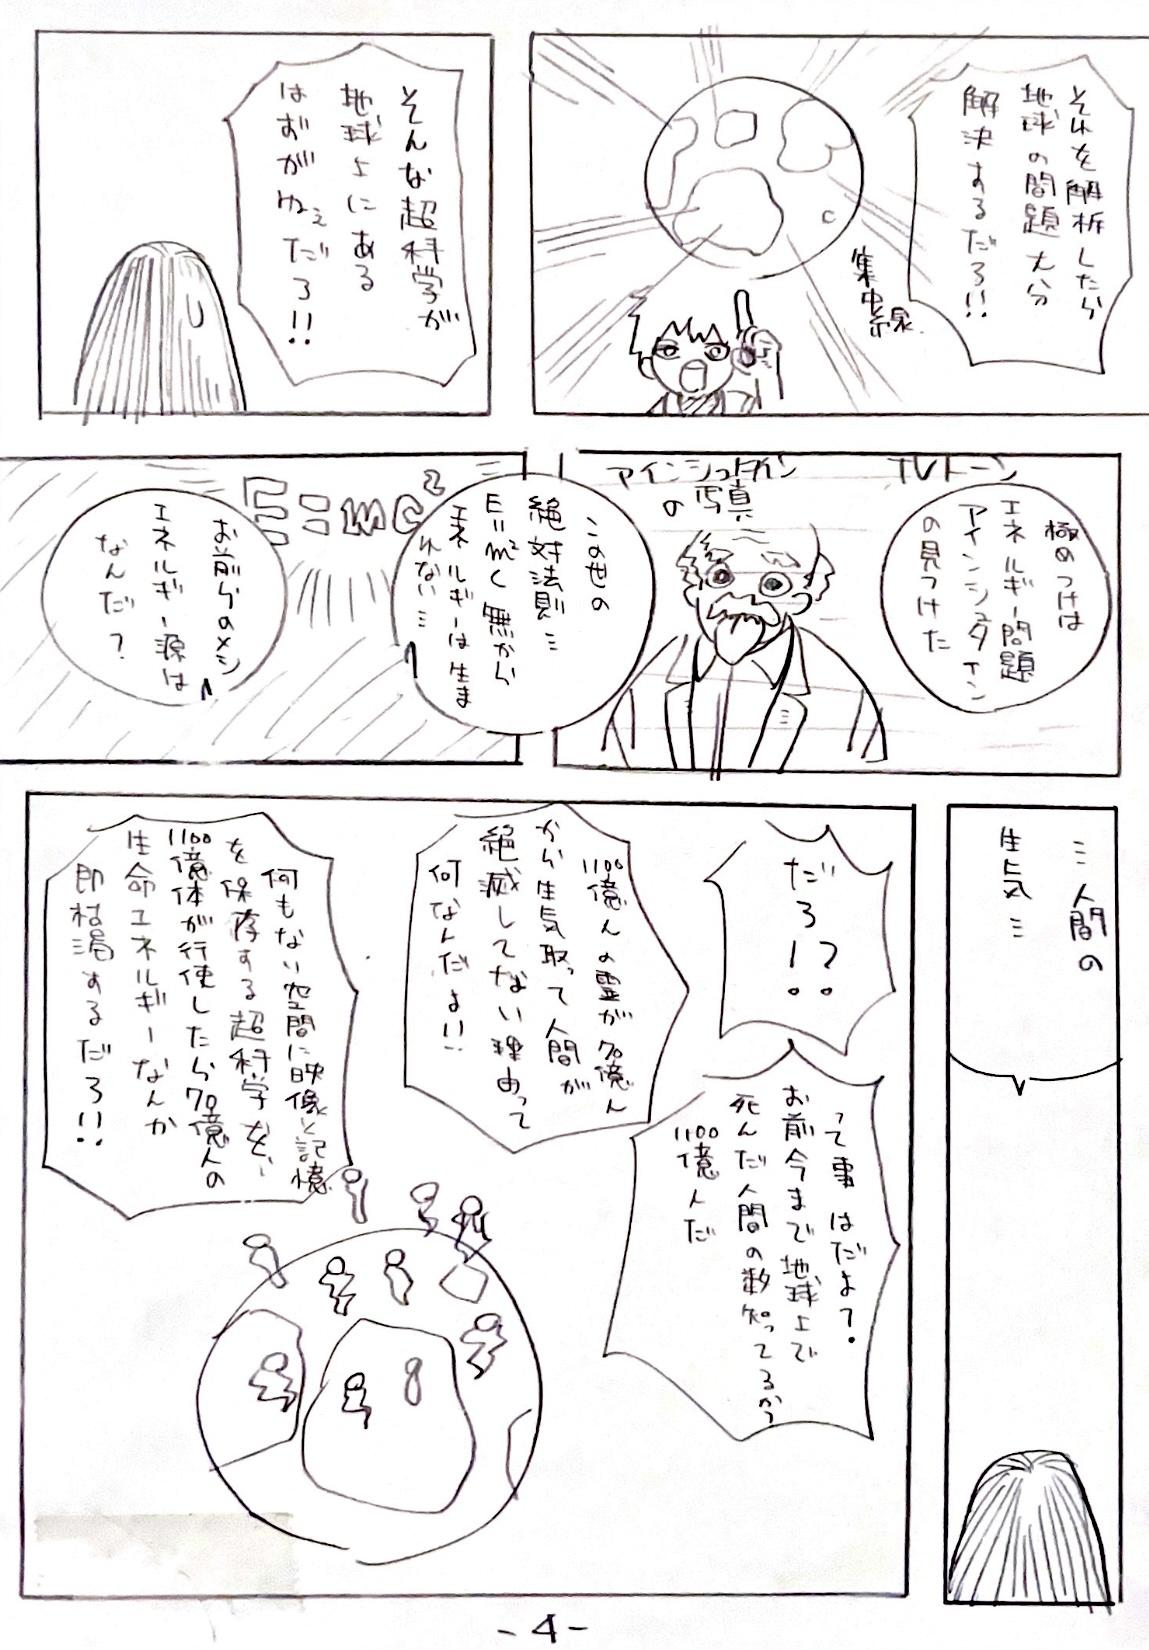 それを解析したら
地球の問題大分
解決するだろ!!
集中線
そんな超科学が
地球上にある
はずがねぇだろ!!
TVトーン
極めつけは
エネルギー問題
アインシュタイン
の見つけた
アインシュタイン
の写真
この世の
絶対法則…
E=m²c 無から
エネルギーは生ま
れない…
E=mc²
お前らのメシ
エネルギー源は
なんだ?
…人間の
生気…
だろ!?
って事はだよ?
お前今まで地球上で
死んだ人間の数知ってるか?
1100億人だ
1100億人の霊が70億人
から生気取って人間が
絶滅してない理由って
何なんだよ!!
何もない空間に映像と記憶
を保存する超科学を、
1100億体が行使したら70億人の
生命エネルギーなんか
即枯渇するだろ!!
-4-